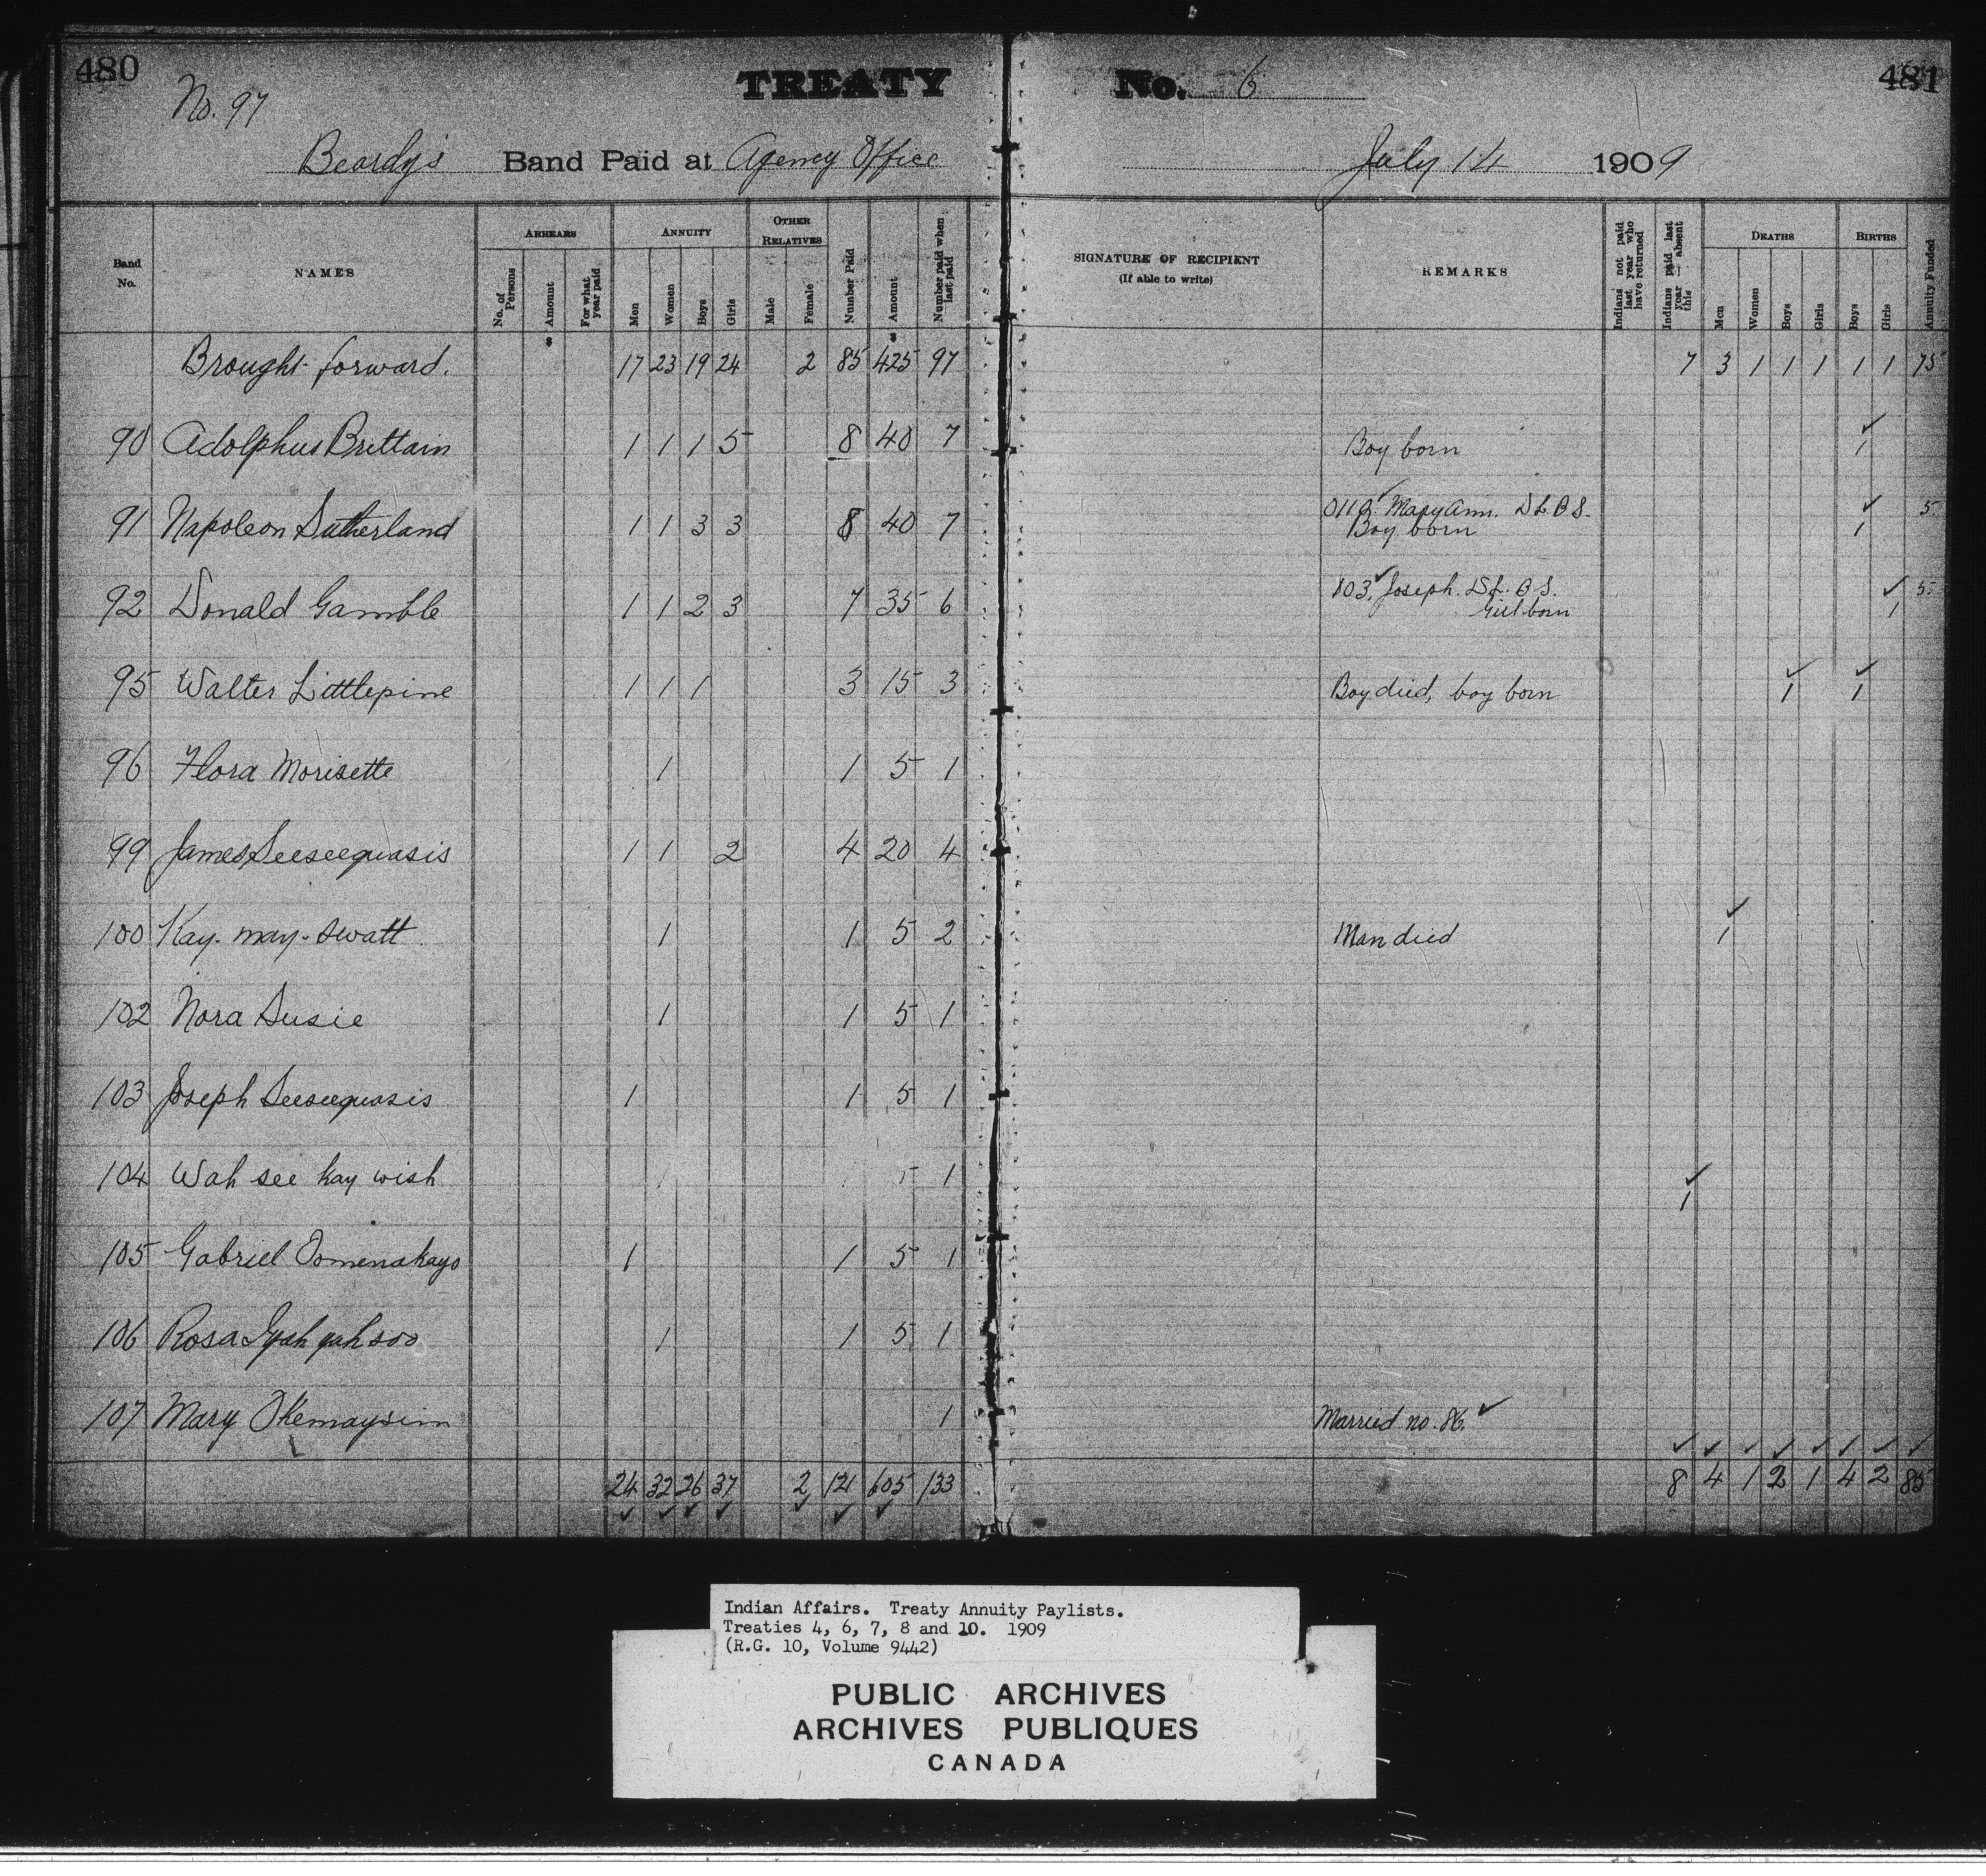 480 TREATY No. 6 481
No. 97
Beardy's Band Paid at Agency Office July 14 1909
Band No. NAMES ARREARS ANNUITY OTHER RELATIVES Number Paid Amount Number paid when last paid SIGNATURE OF RECIPIENT (If able to write) REMARKS Indians not paid last year who have returned Indians paid last year — absent this DEATHS BIRTHS Annuity Funded
No. of Persons Amount For what year paid Men Women Boys Girls Male Female Men Women Boys Girls Boys Girls
$ $
Brought forward. 17 23 19 24 2 85 425 97 7 3 1 1 1 1 1 75
90 Adolphus Brittain 1 1 1 5 8 40 7 Boy born ✓ 1
91 Napoleon Sutherland 1 1 3 3 8 40 7 ✓ Mary Ann. D L. B S. ✓ 5
Boy born 1
92 Donald Gamble 1 1 2 3 7 35 6 103, ✓ Joseph. D L. B S. ✓ 5
Girl born 1
95 Walter Littlepine 1 1 1 3 15 3 Boy died, boy born ✓ 1 ✓ 1
96 Flora Morisette 1 1 5 1
99 James Seeseequasis 1 1 2 4 20 4
100 Kay-may-swatt 1 1 5 2 Man died ✓ 1
102 Nora Susie 1 1 5 1
103 Joseph Seeseequasis 1 1 5 1
104 Wah see kay wish 1 ✓ 1
105 Gabriel 1 1 5 1
106 Rosa 1 1 5 1
107 Mary Okemaysim 1 Married no. 86. ✓
✓ ✓ ✓ ✓ ✓ ✓ ✓ ✓
24 32 26 37 2 121 605 133 8 4 1 2 1 4 2 85
✓ ✓ ✓ ✓ ✓ ✓ ✓
Indian Affairs. Treaty Annuity Paylists.
Treaties 4, 6, 7, 8 and 10. 1909
(R.G. 10, Volume 9442)
PUBLIC ARCHIVES
ARCHIVES PUBLIQUES
CANADA